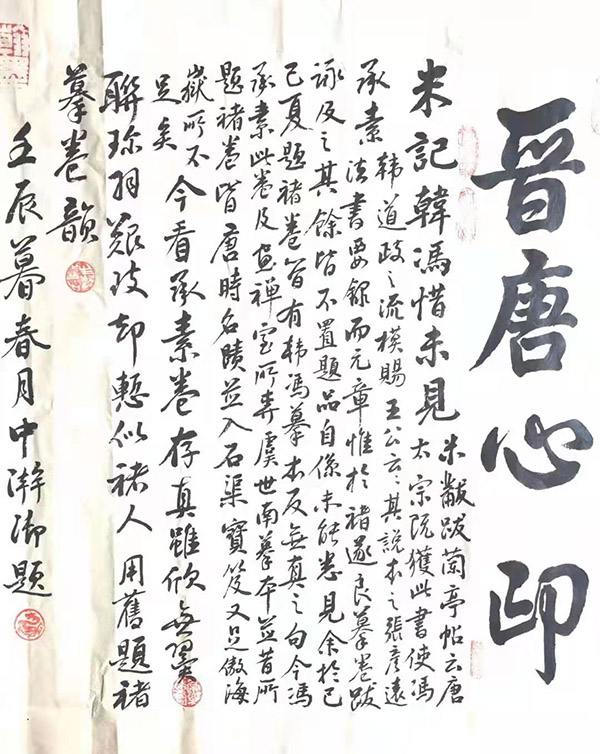 晉唐心印
米記韓馮惜未見
米黻跋蘭亭帖云唐
太宗既獲此書使馮
承素
韓道政之流模賜王公云云其說本之張彥遠
法書要錄而元章惟於褚遂良摹卷跋
詠及之其餘皆不置題品自係未能悉見余於己
巳夏題褚卷曾有韓馮摹本反無真之句今馮
承素此卷及畫禪室所弆虞世南摹本並昔所
題褚卷皆唐時名蹟並入石渠寶笈又足傲海
嶽所不
足矣
今看承素卷存真雖欣無翼
聯珍羽艱致却慙似褚人用舊題褚
摹卷韻
壬辰暮春月中澣御題